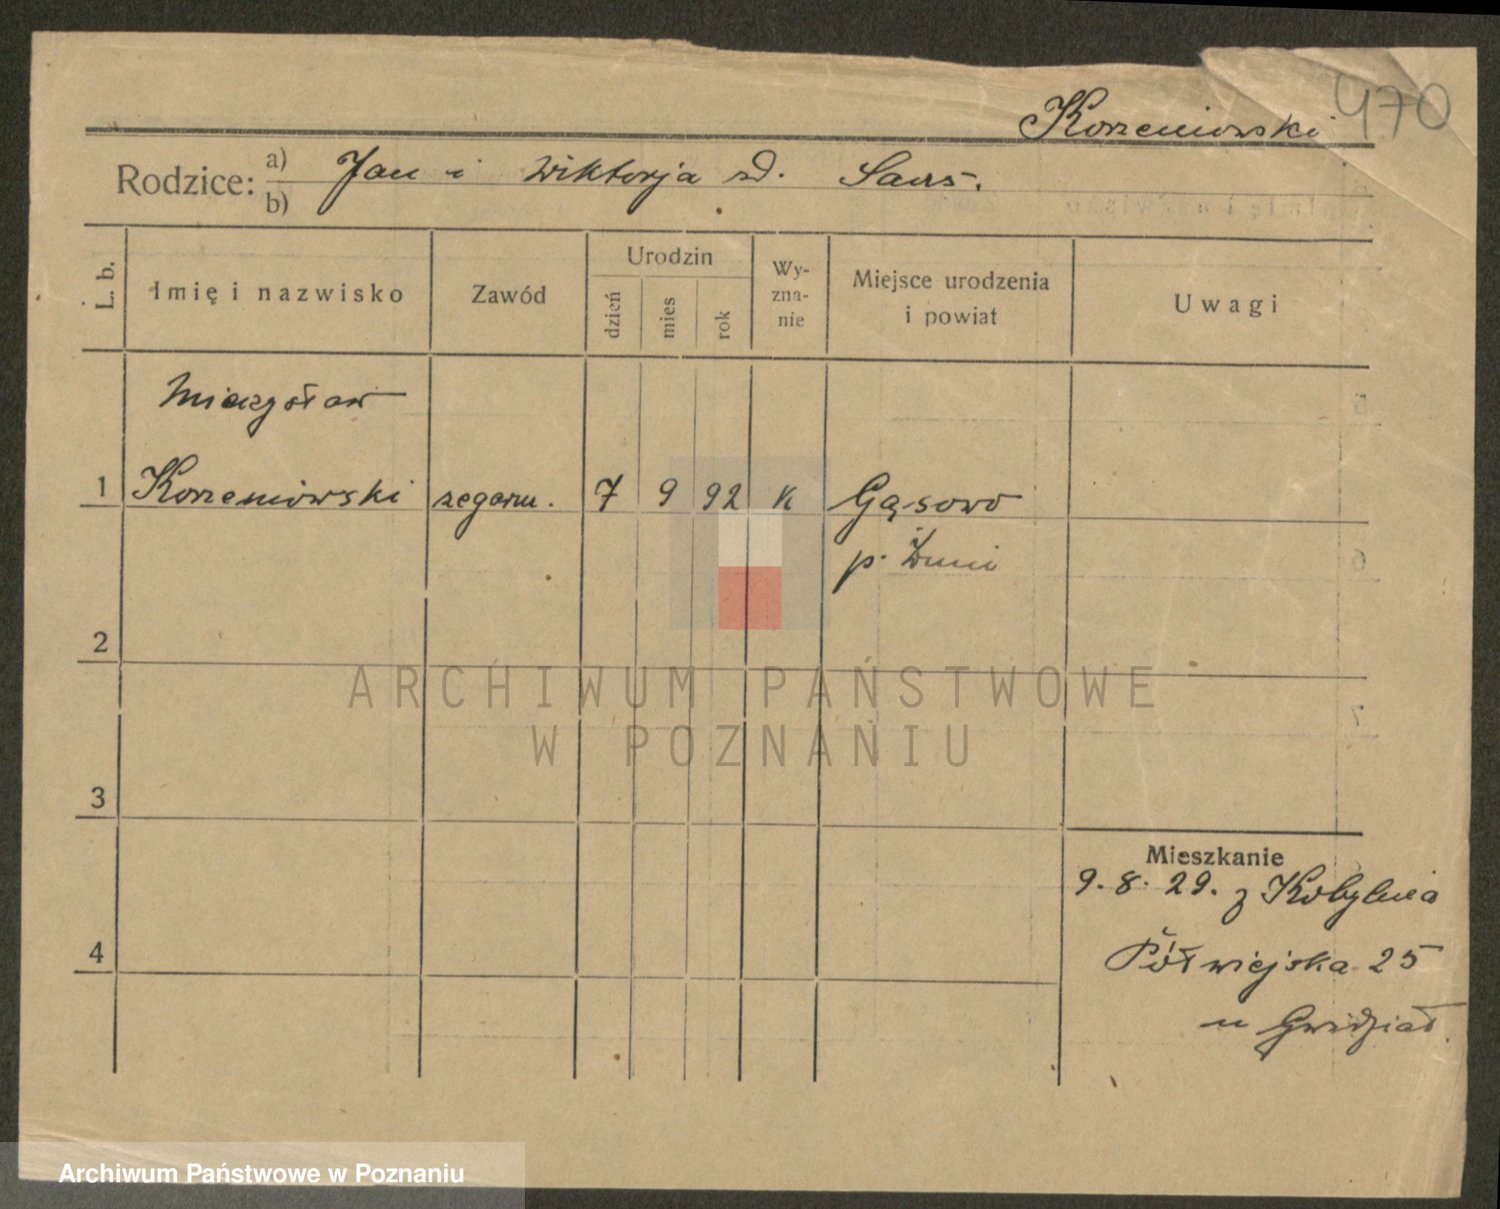 470
Korzeniowski
Rodzice: a) Jan i Wiktorja zd.
b)
L. b.
Imię i nazwisko
Zawód
Urodzin
dzień
mies
rok
Wy-
zna-
nie
Miejsce urodzenia
i powiat
Uwagi
Mieczysław
1 Korzeniowski zegarm. 7 9 92 k Gąsowo
p. Żnin
2
3
4
Mieszkanie
9. 8. 29. z Kobylnica
Półwiejska 25
u
ARCHIWUM PAŃSTWOWE
W POZNANIU
Archiwum Państwowe w Poznaniu